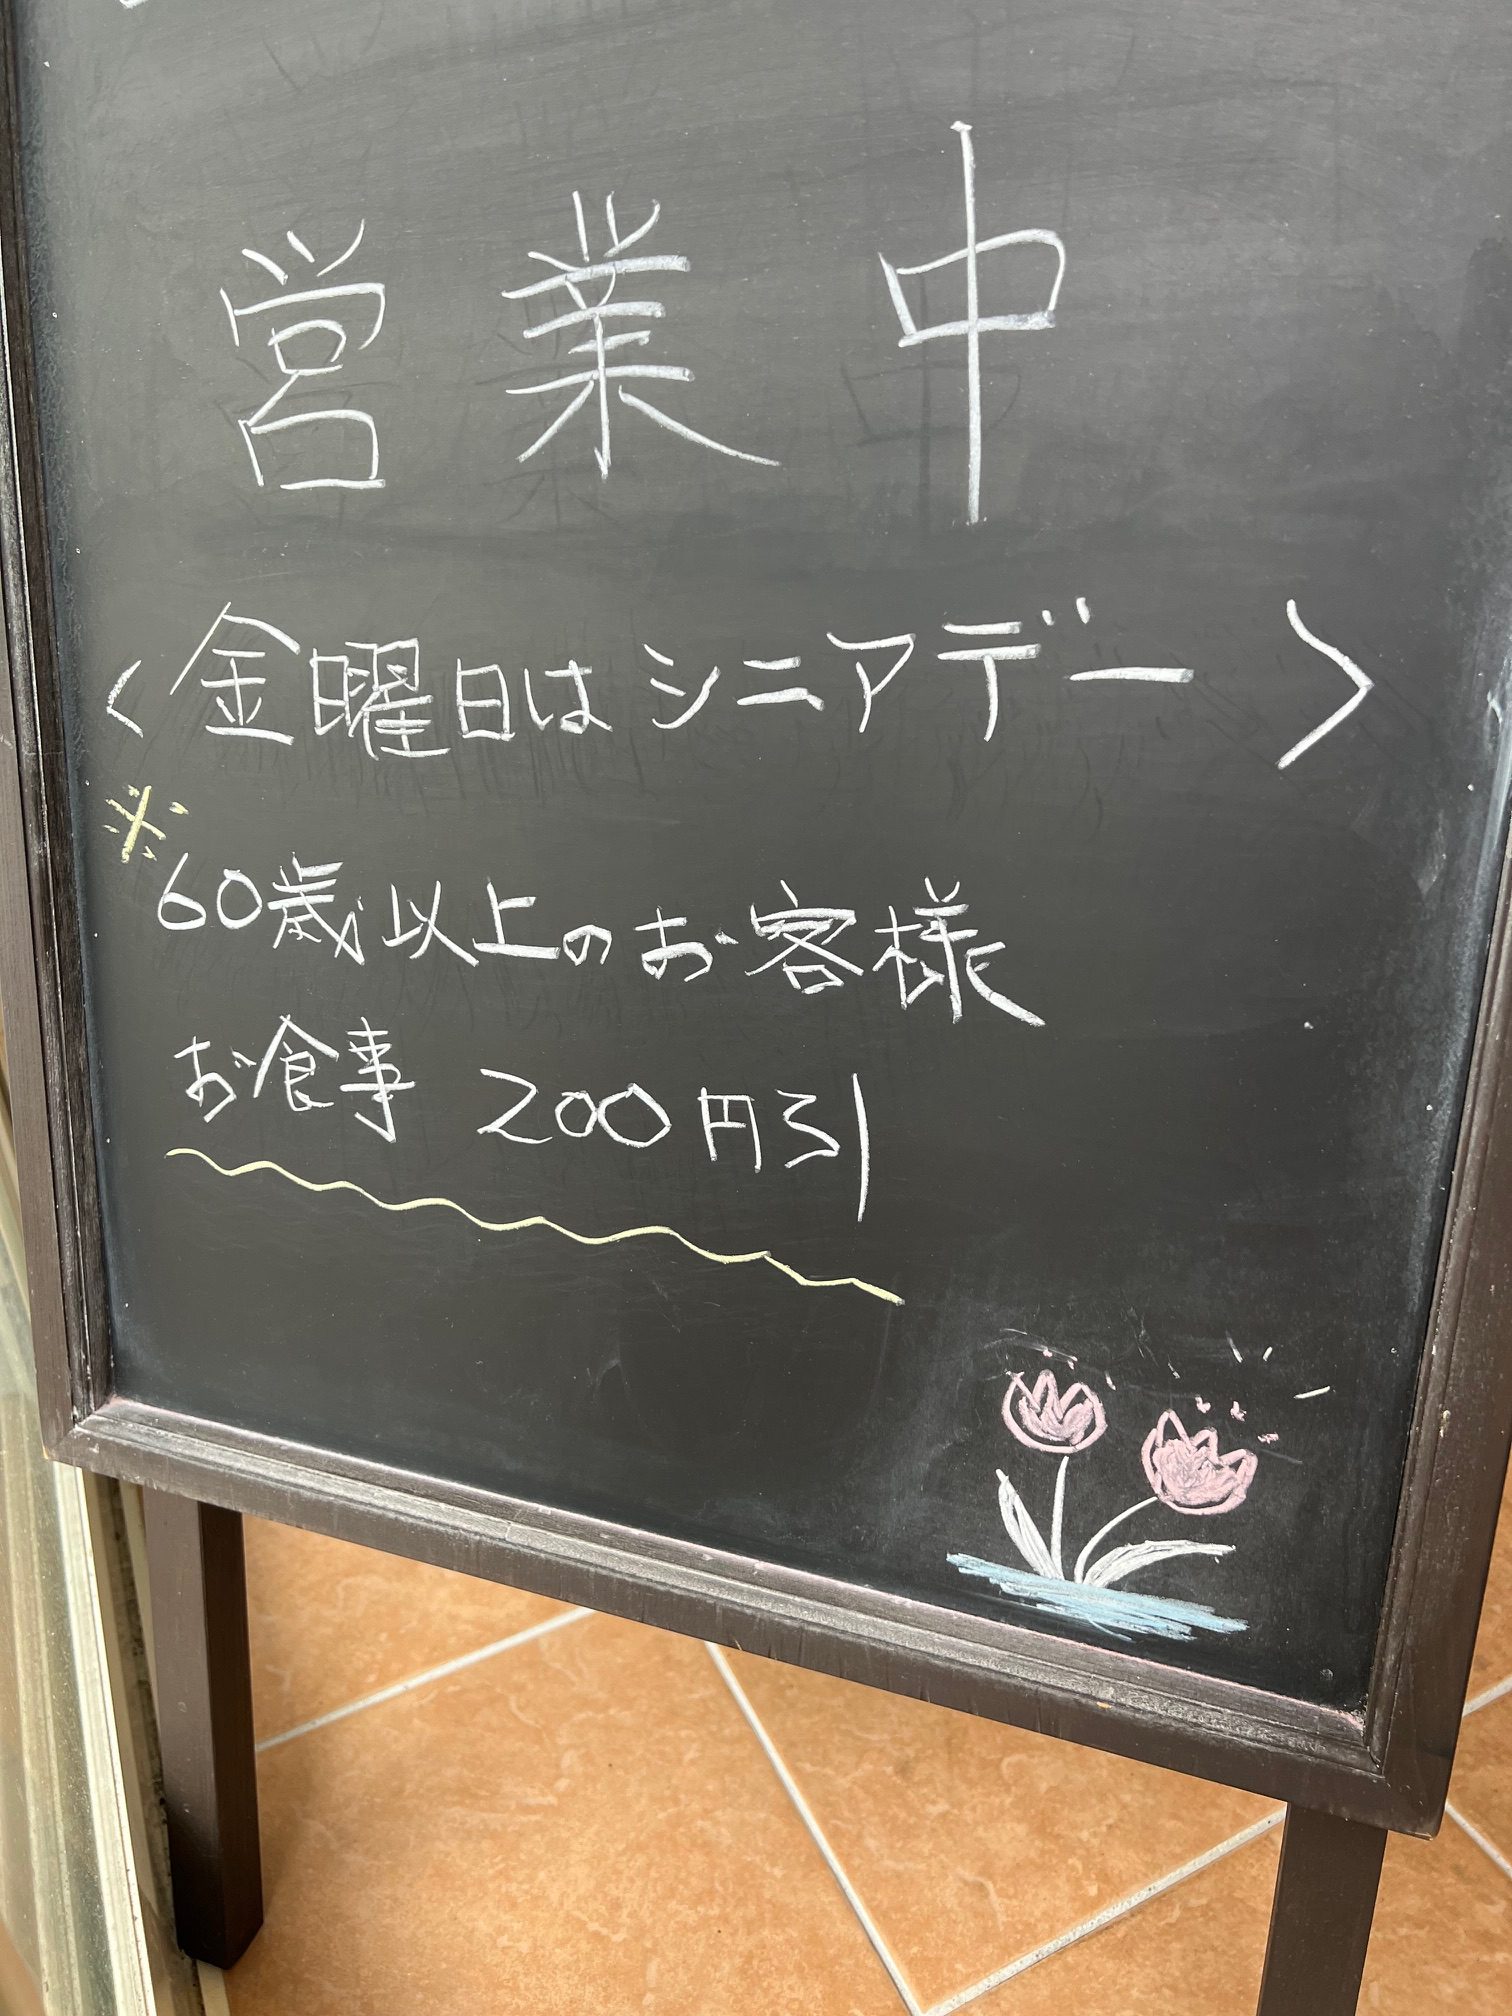 営業中
〈金曜日はシニアデー〉
※
60歳以上のお客様
お食事 200円引